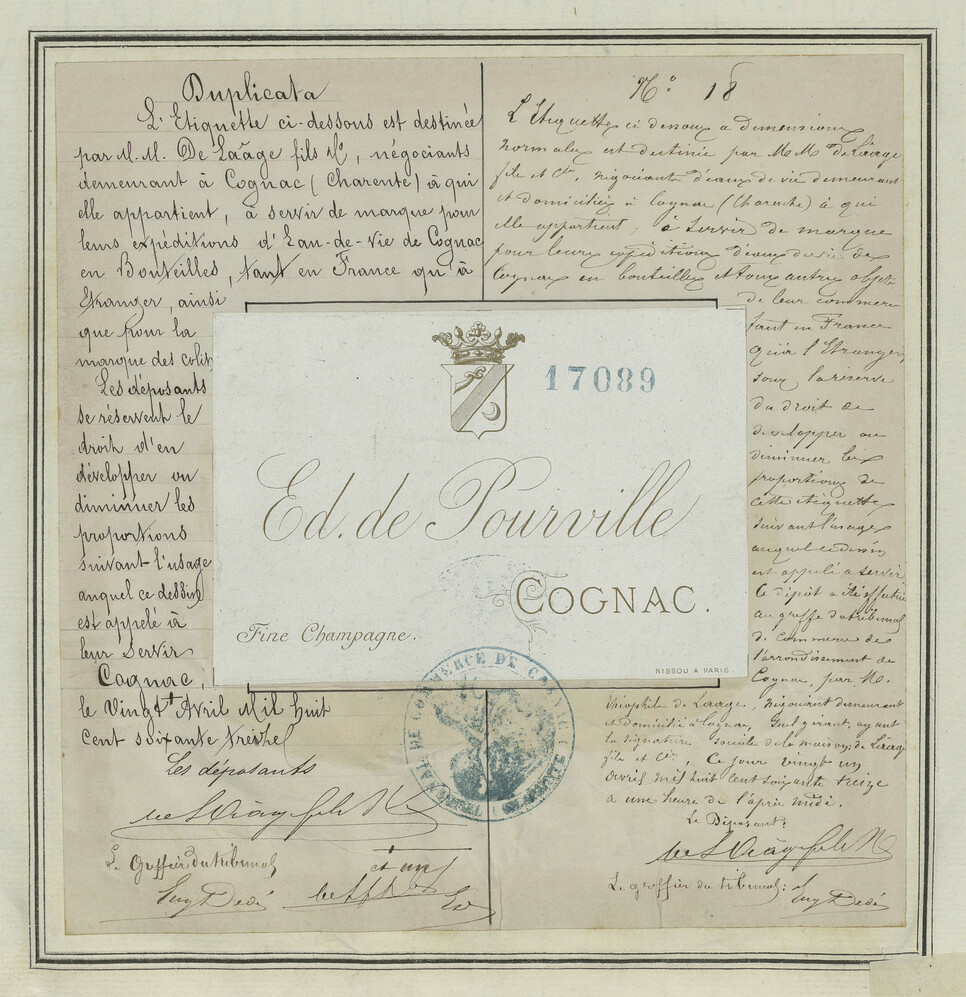 Duplicata
L'Etiquette ci-dessous est destinée
par M.M. De Laâge fils & Cº, négociants
demeurant à Cognac (Charente) à qui
elle appartient, à servir de marque pour
leurs expéditions d'Eau-de-vie de Cognac
en Bouteilles, tant en France qu'à
Etranger, ainsi
que pour la
marque des colis
Les déposants
se réservent le
droit d'en
développer ou
diminuer les
proportions
suivant l'usage
auquel ce dessin
est appelé à
leur servir
Cognac,
le Vingt Avril Mil huit
Cent soixante treize
Les déposants
de Laâge fils & Cº
Le Greffier du tribunal
Nº 18
L'Etiquette ci dessous a dimensions
normales est destinée par MM de Laâge
fils et Cie, négociants d'eaux de vie demeurant
et domiciliés à Cognac (Charente) à qui
elle appartient, à servir de marque
pour leurs expéditions d'eaux de vie de
Cognac en bouteilles et tous autres objets
de leur commerce
tant en France
qu'à l'Etranger,
sous la réserve
du droit de
développer ou
diminuer les
proportions de
cette étiquette
suivant l'usage
auquel ce dessin
est appelé à servir
Ce dépôt a été effectué
au greffe du tribunal
de commerce de
l'arrondissement de
Cognac, par M.
Théophile de Laâge, négociant demeurant
et domicilié à Cognac, seul gérant, ayant
la signature sociale de la maison de Laâge
fils et Cie, Ce jour vingt un
avril mil huit cent soixante treize
a une heure de l'après midi.
Le Déposant:
de Laâge fils & Cº
Le greffier du tribunal:
17089
Ed. de Pourville
COGNAC.
Fine Champagne.
NISSOU A PARIS.
TRIBUNAL DE COMMERCE DE COGNAC (CHARENTE)